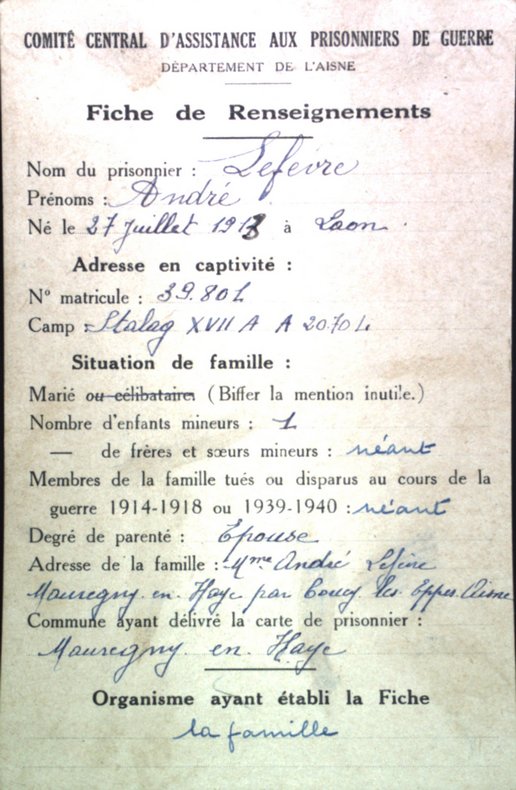 COMITÉ CENTRAL D'ASSISTANCE AUX PRISONNIERS DE GUERRE
DÉPARTEMENT DE L'AISNE
Fiche de Renseignements
Nom du prisonnier : Lefèvre
Prénoms : André
Né le 27 Juillet 1913 à Laon.
Adresse en captivité :
N° matricule : 39.801
Camp : Stalag XVII A A 20701
Situation de famille :
Marié ou célibataire. (Biffer la mention inutile.)
Nombre d'enfants mineurs : 1
— de frères et sœurs mineurs : néant
Membres de la famille tués ou disparus au cours de la
guerre 1914-1918 ou 1939-1940 : néant
Degré de parenté : Epouse
Adresse de la famille : Mme André Lefèvre
Mauregny. en. Haye par Coucy les Eppes. Aisne
Commune ayant délivré la carte de prisonnier :
Mauregny. en. Haye
Organisme ayant établi la Fiche
la famille